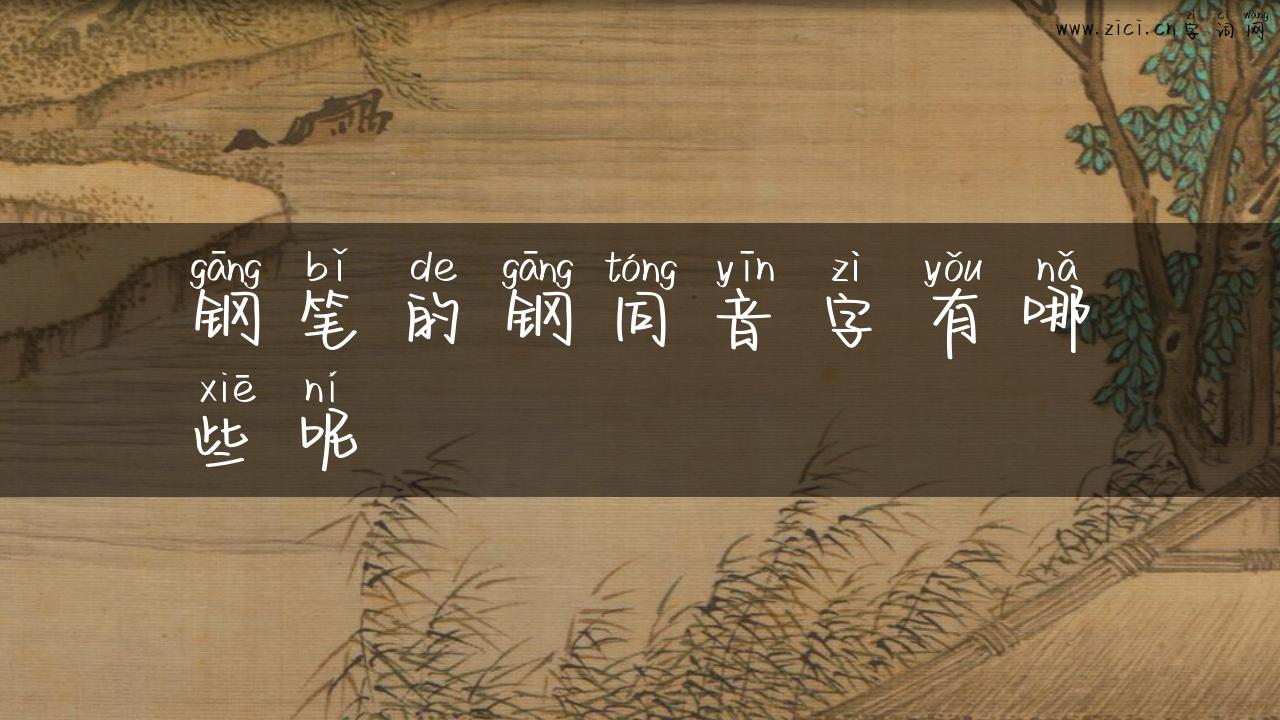 zì cí wǎng
www.zici.cn字词网
gāng bǐ de gāng tóng yīn zì yǒu nǎ
钢笔的钢同音字有哪
xiē ní
些呢